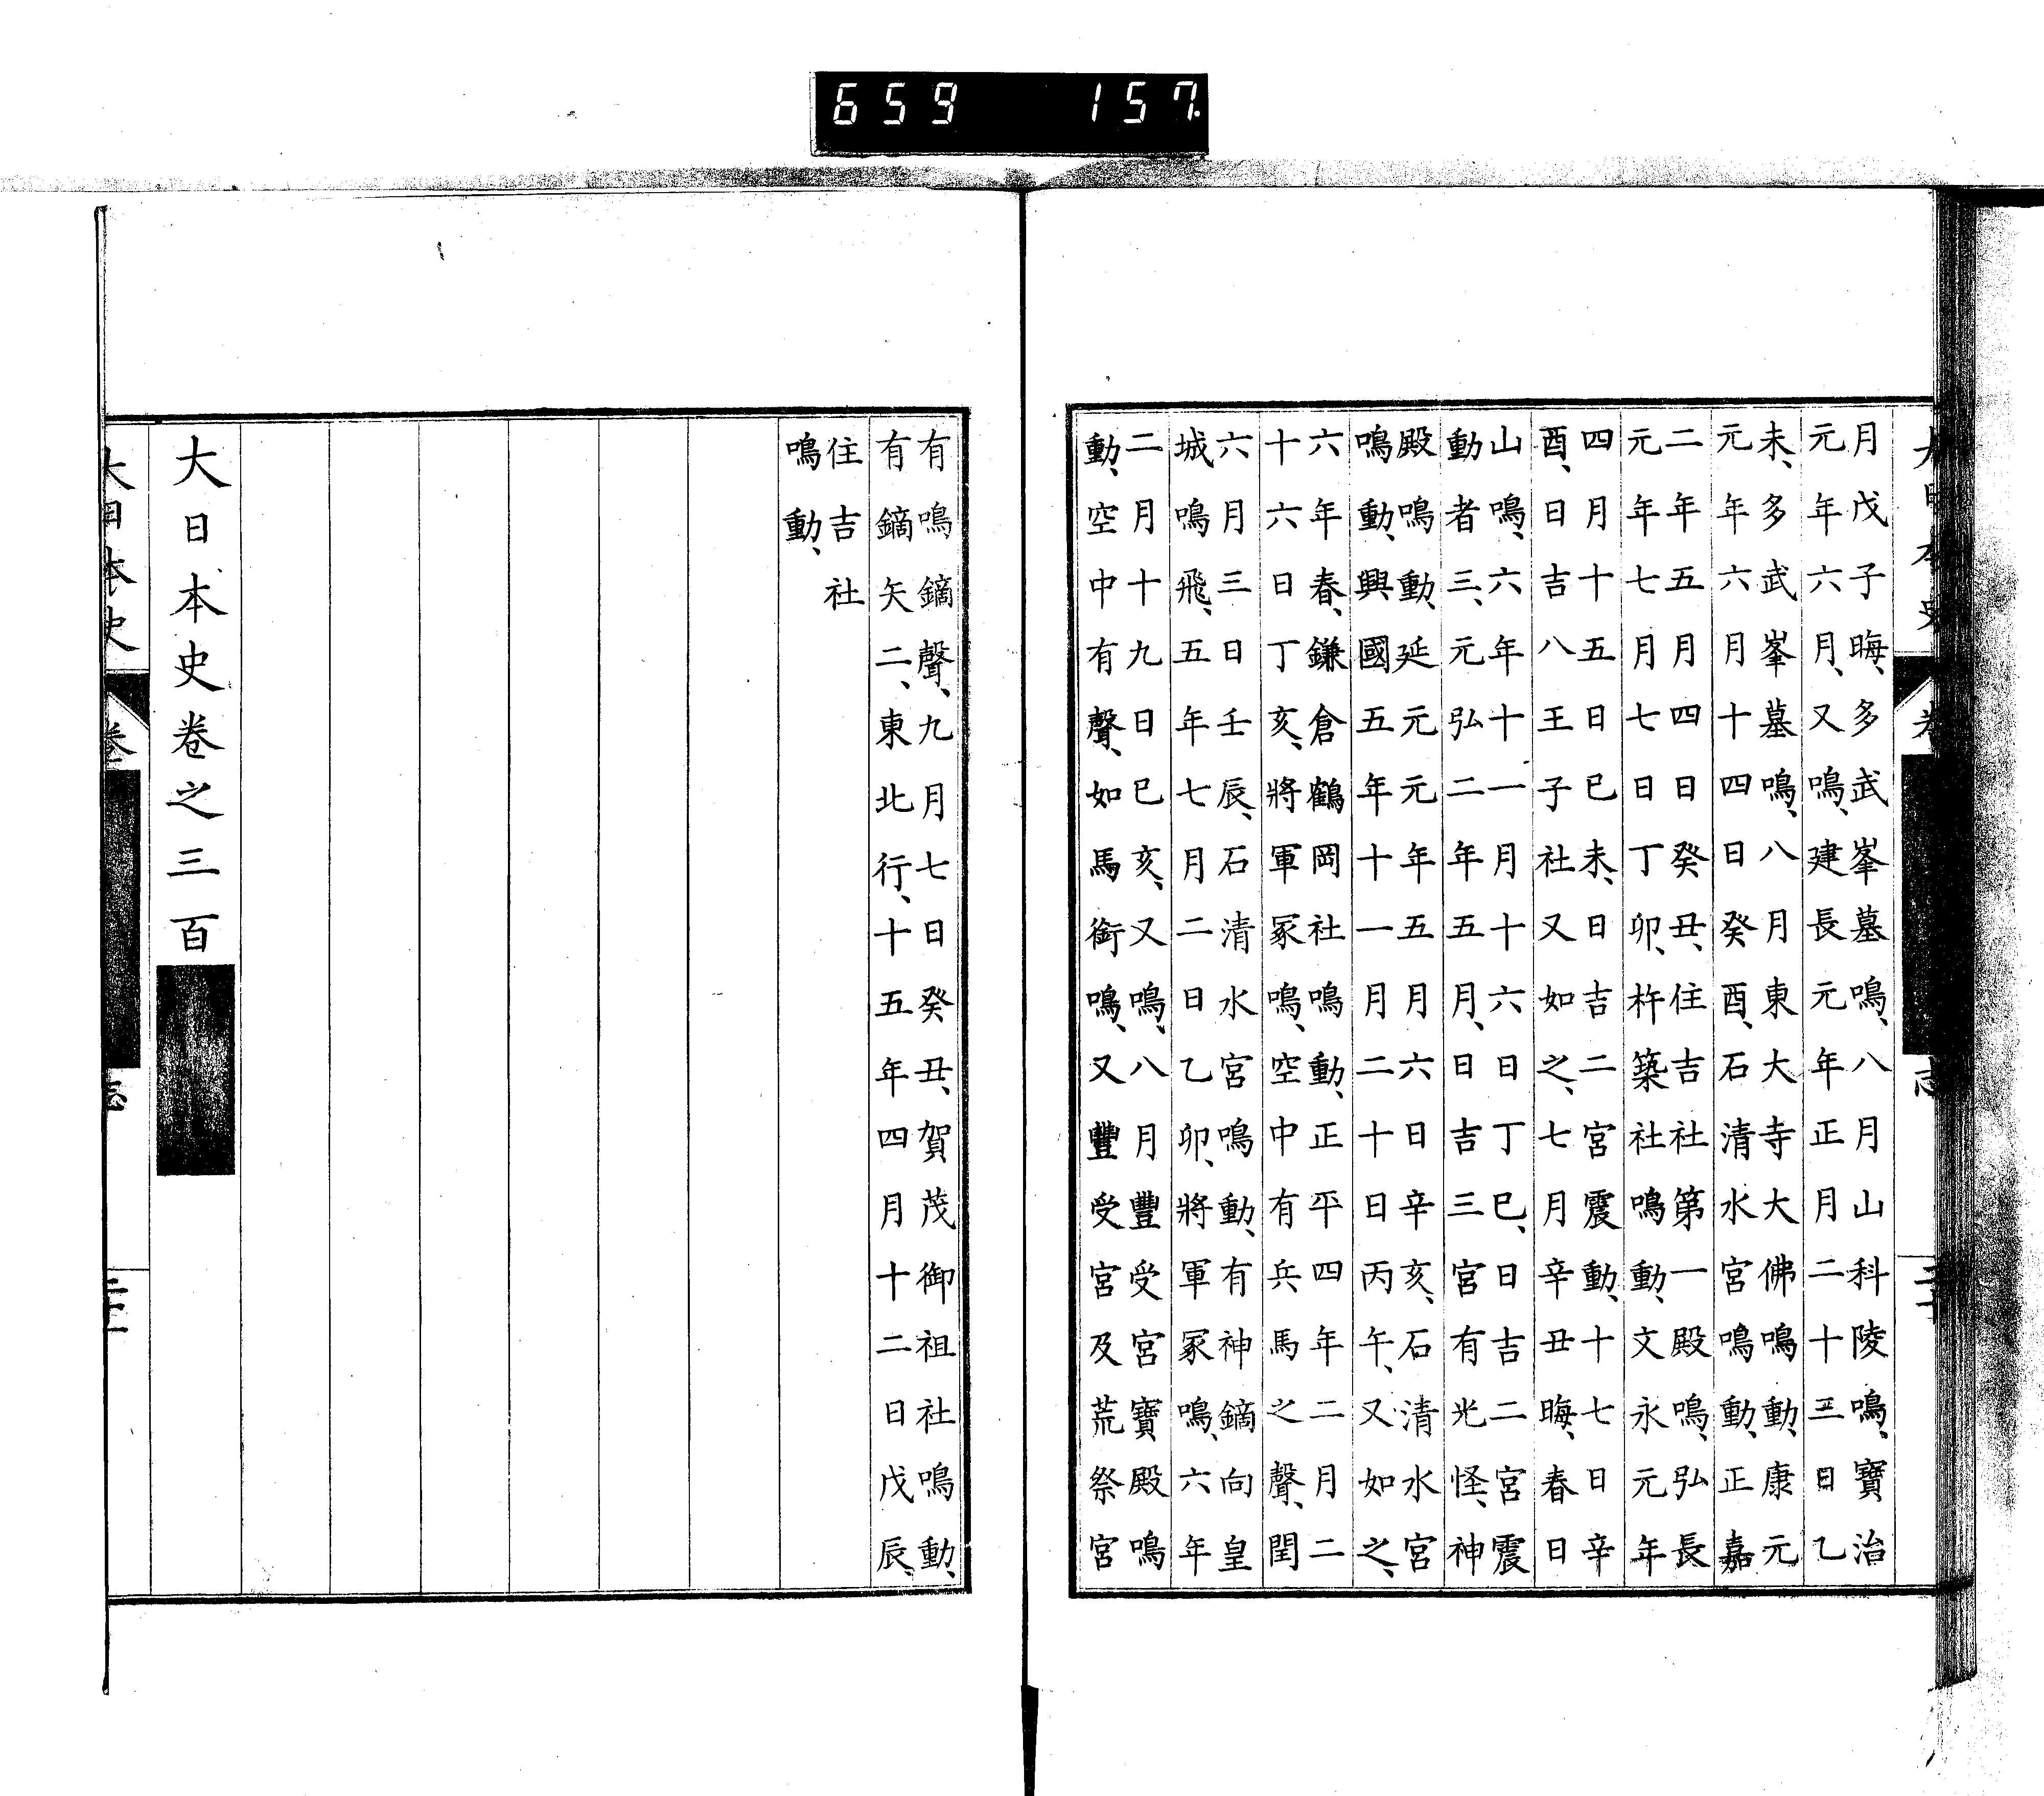 659 157.
月戊子晦、多武峯墓鳴、八月山科陵鳴、寶治
元年六月、又鳴、建長元年正月二十三日乙
未、多武峯墓鳴、八月東大寺大佛鳴動、康元
元年六月十四日癸酉、石清水宮鳴動、正嘉
二年五月四日癸丑、住吉社第一殿鳴、弘長
元年七月七日丁卯、杵築社鳴動、文永元年
四月十五日己未、日吉二宮震動、十七日辛
酉、日吉八王子社又如之、七月辛丑晦、春日
山鳴、六年十一月十六日丁巳、日吉二宮震
動者三、元弘二年五月、日吉三宮有光怪、神
殿鳴動、延元元年五月六日辛亥、石清水宮
鳴動、興國五年十一月二十日丙午、又如之、
六年春、鎌倉鶴岡社鳴動、正平四年二月二
十六日丁亥、將軍冢鳴、空中有兵馬之聲、閏
六月三日壬辰、石清水宮鳴動、有神鏑向皇
城鳴飛、五年七月二日乙卯、將軍冢鳴、六年
二月十九日己亥、又鳴、八月豐受宮寶殿鳴
動、空中有聲、如馬銜鳴、又豐受宮及荒祭宮
有鳴鏑聲、九月七日癸丑、賀茂御祖社鳴動、
有鏑矢二、東北行、十五年四月十二日戊辰、
住吉社
鳴動、
大日本史卷之三百
大日本史 卷 志